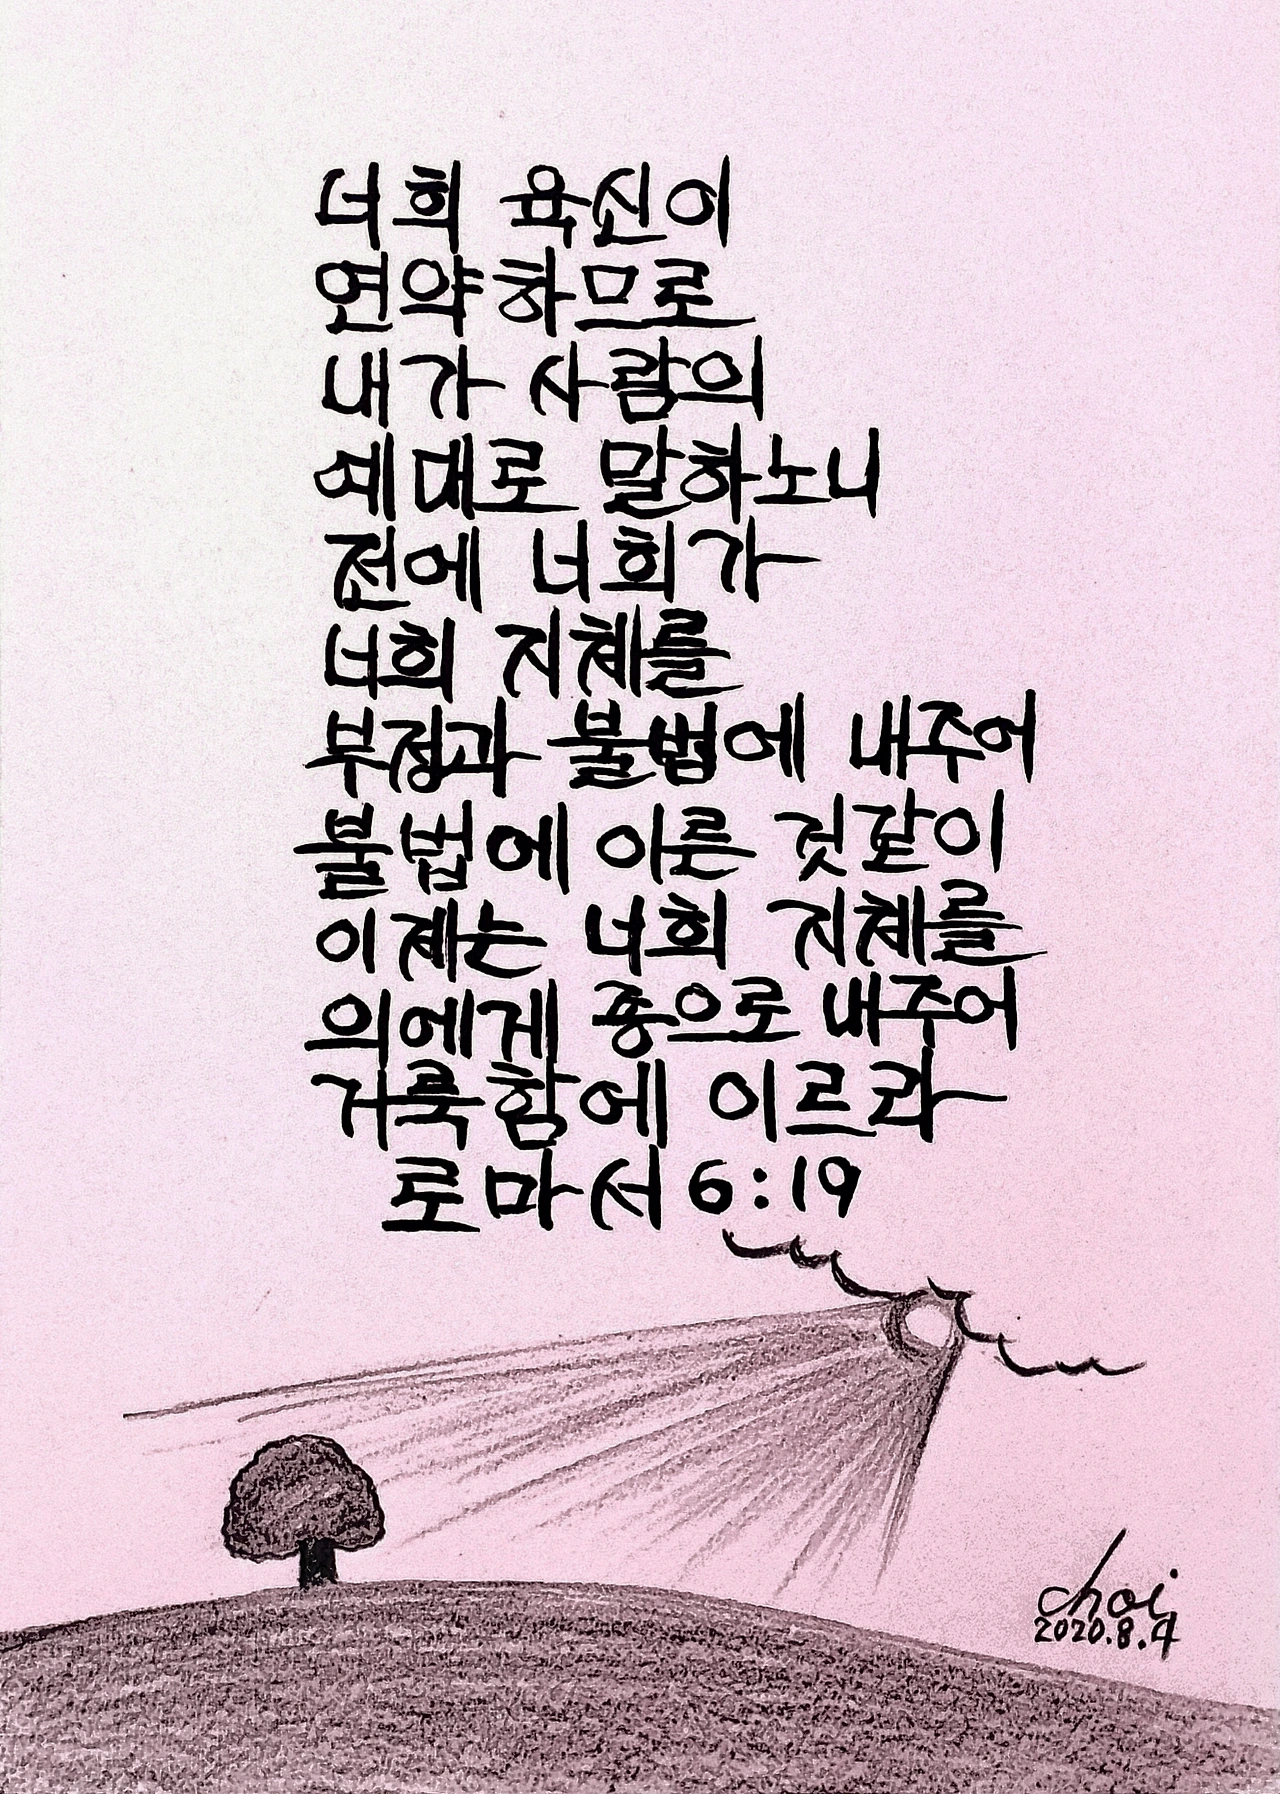 너희 육신이
연약하므로
내가 사람의
예대로 말하노니
전에 너희가
너희 지체를
부정과 불법에 내주어
불법에 이른 것같이
이제는 너희 지체를
의에게 종으로 내주어
거룩함에 이르라
로마서 6:19
choi
2020.8.4